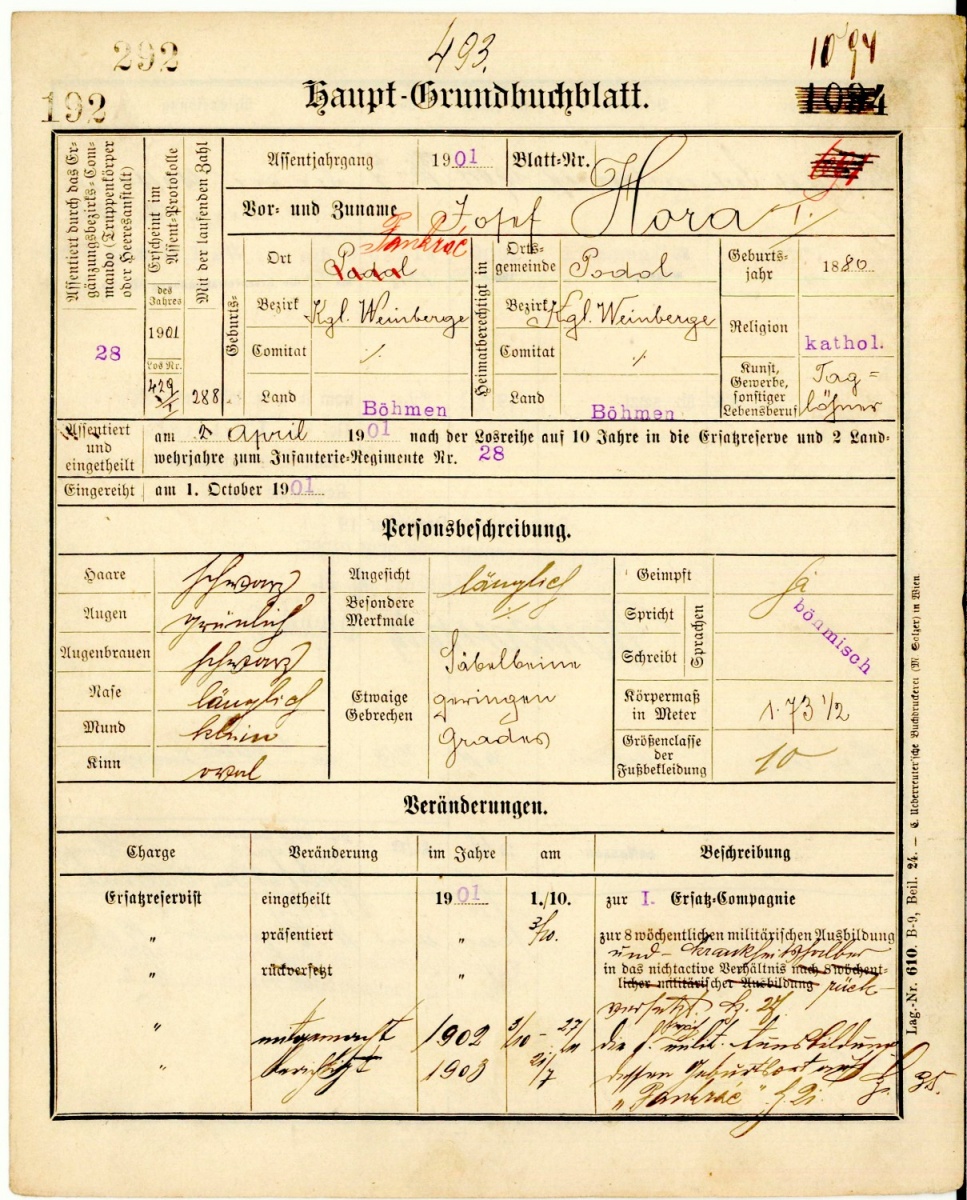 292
493.
1094
192
Haupt-Grundbuchblatt.
1094
Assentiert durch das Ergänzungsbezirks-Commando (Truppenkörper oder Heeresanstalt)
28
Erscheint im Assent-Protokolle
des Jahres
1901
Los Nr.
429/I
Mit der laufenden Zahl
288
Assentjahrgang 1901 Blatt-Nr.
Vor- und Zuname Josef Hora I.
Geburts-
Ort Podol Pankrác
Bezirk Kgl. Weinberge
Comitat ./.
Land Böhmen
Heimatberechtigt in
Ortsgemeinde Podol
Bezirk Kgl. Weinberge
Comitat ./.
Land Böhmen
Geburtsjahr 1880
Religion kathol.
Kunst, Gewerbe, sonstiger Lebensberuf Tag=
löhner
Assentiert und eingetheilt
am 2 April 1901 nach der Losreihe auf 10 Jahre in die Ersatzreserve und 2 Land-
wehrjahre zum Infanterie-Regimente Nr. 28
Eingereiht am 1. October 1901
Personsbeschreibung.
Haare schwarz
Augen grünlich
Augenbrauen schwarz
Nase länglich
Mund klein
Kinn oval
Angesicht länglich
Besondere Merkmale ./.
Etwaige Gebrechen Säbelbeine
geringen
Grades
Geimpft ja
Spricht
Schreibt
Sprachen
böhmisch
Körpermaß in Meter 1.73 1/2
Größenclasse der Fußbekleidung 10
Veränderungen.
Charge Veränderung im Jahre am Beschreibung
Ersatzreservist eingetheilt 1901 1./10. zur I. Ersatz-Compagnie
" präsentiert " 3/10. zur 8 wöchentlichen militärischen Ausbildung
und krankheitshalber
" rückversetzt " in das nichtactive Verhältnis nach 8 wöchent-
licher militärischer Ausbildung rück-
versetzt.
" mitgemacht 1902 3/10 - 27/11 die milit. Ausbildung
" berichtigt 1903 21/7 dessen Geburtsort auf
"Pankrác"
35.
Lag.-Nr. 610. B-9, Beil. 24. — C. Ueberreuter'sche Buchdruckerei (M. Salzer) in Wien